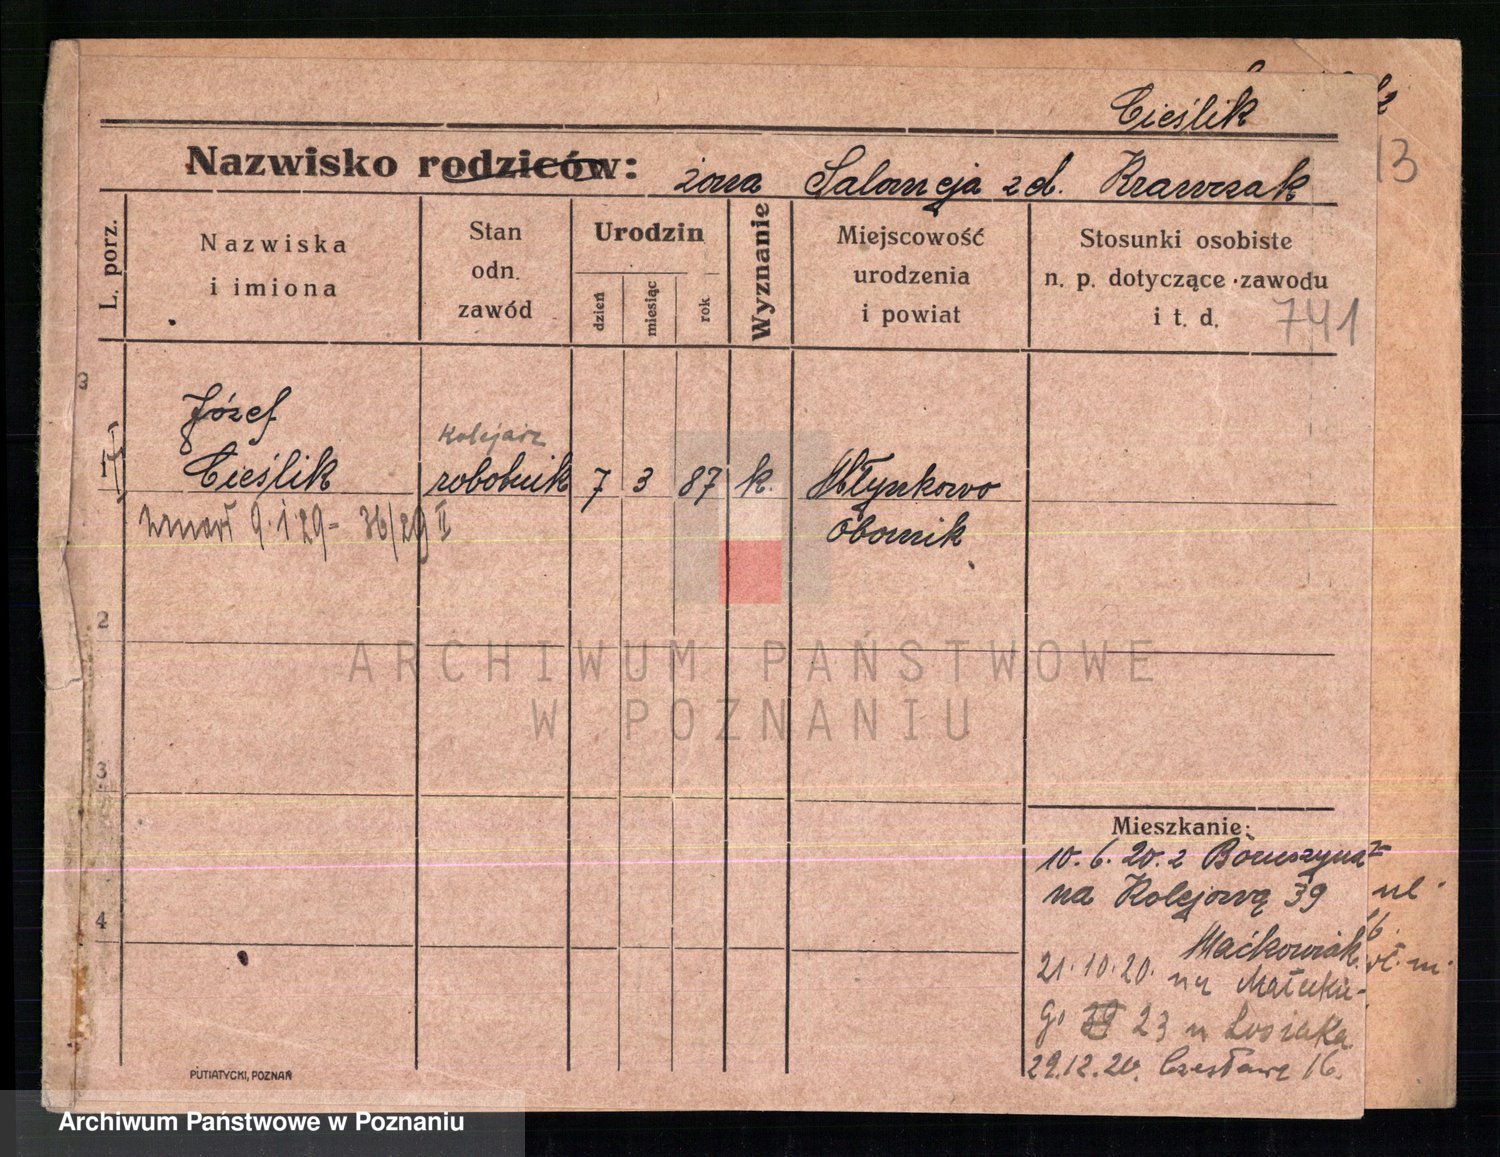 Cieślik
13
Nazwisko rodziców: żona Salomeja z d. Krawczak
L. porz.
Nazwiska
i imiona
Stan
odn.
zawód
Urodzin
dzień
miesiąc
rok
Wyznanie
Miejscowość
urodzenia
i powiat
Stosunki osobiste
n. p. dotyczące zawodu
i t. d.
741
3
Józef
Cieślik
kolejarz
robotnik
7
3
87
k.
Młynkowo
Obornik
zmarł 9.1.29 - 36/29 II
2
3
4
Mieszkanie:
10.6.20. z Boruszyna
na Kolejową 39
Maćkowiak.
21.10.20. na Małeckie-
go 23 u Losiaka
29.12.20. Czesława 16.
ul.
PUTIATYCKI, POZNAŃ
ARCHIWUM PAŃSTWOWE
W POZNANIU
Archiwum Państwowe w Poznaniu